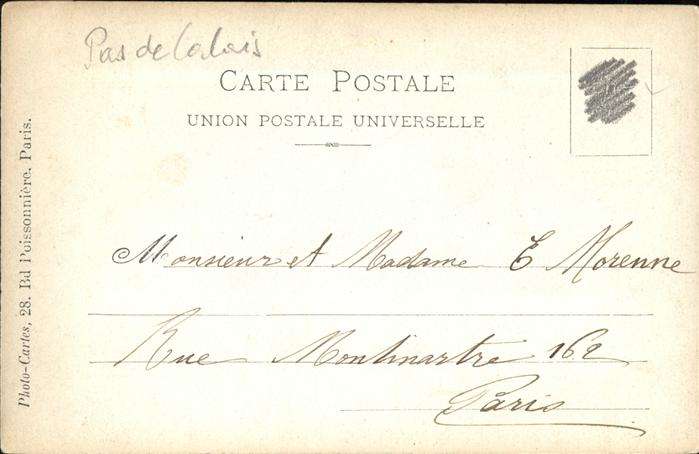 Pas de Calais
CARTE POSTALE
UNION POSTALE UNIVERSELLE
Monsieur et Madame E Morenne
Rue Montmartre 162
Paris
Photo-Cartes, 28, Bd Poissonnière, Paris.